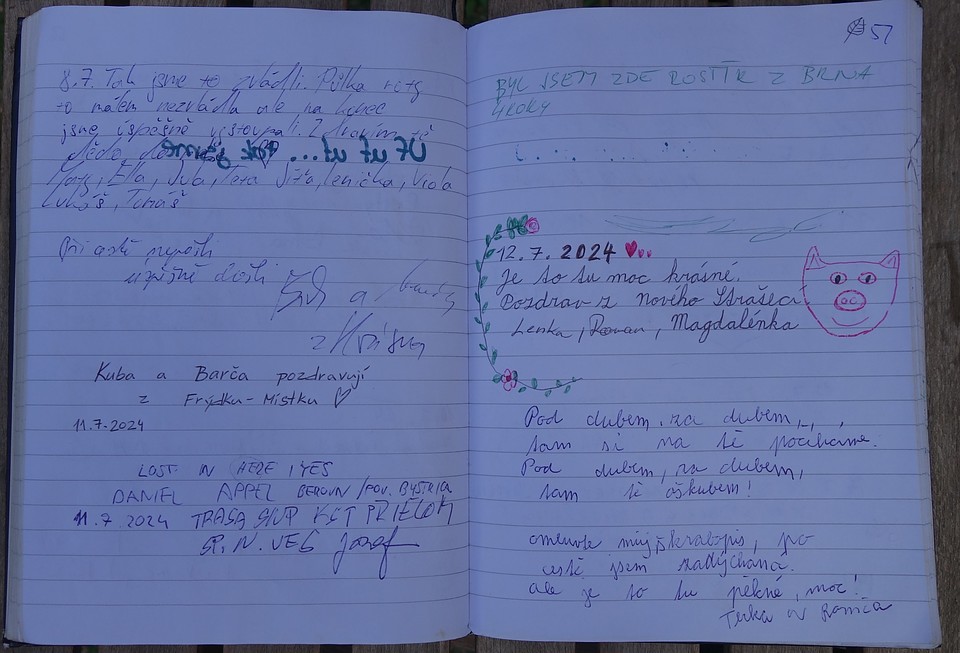 8.7. Tak jsme to zvládli. Půlka
to málem nezvládla ale na konec
jsme úspěšně vystoupali. Zdravím
děda,
Uf uf uf... tak jsme
Ella, Juba, Teta Jíťa, Lenička, Viola
Lukáš, Tomáš
Při cestě
úspěšně došli
a
z
Kuba a Barča pozdravují
z Frýdku-Místku ♡
11.7.2024
LOST IN HERE, YES
DANIEL APPEL BEROUN / POV. BYSTRICA
11.7 2024 TRASA SKUP KST
SP. N. VES Jozef
57
BYL JSEM ZDE ROSTÍK Z BRNA
4ROKY
12.7.2024
Je to tu moc krásné.
Pozdrav z Nového Strašecí
Lenka, Roman, Magdalénka
Pod dubem, za dubem,
tam si na tě počíháme.
Pod dubem, za dubem,
tam tě oškubem!
omluvte můj škrabopis, po
cestě jsem zadýchaná.
ale je to tu pěkné, moc!
Terka